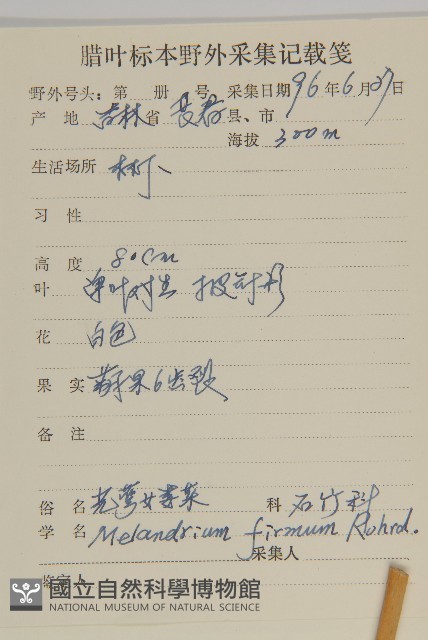 腊叶标本野外采集记载笺
野外号头：第 册 号 采集日期 96年6月27日
产 地 吉林省 长春 县、市
海拔 300m
生活场所 林下
习 性
高 度 80cm
叶 单叶对生 披针形
花 白色
果 实 蒴果6齿裂
备 注
俗 名 光萼女娄菜 科 石竹科
学 名 Melandrium firmum Rohrd.
采集人
鉴定人
國立自然科學博物館
NATIONAL MUSEUM OF NATURAL SCIENCE